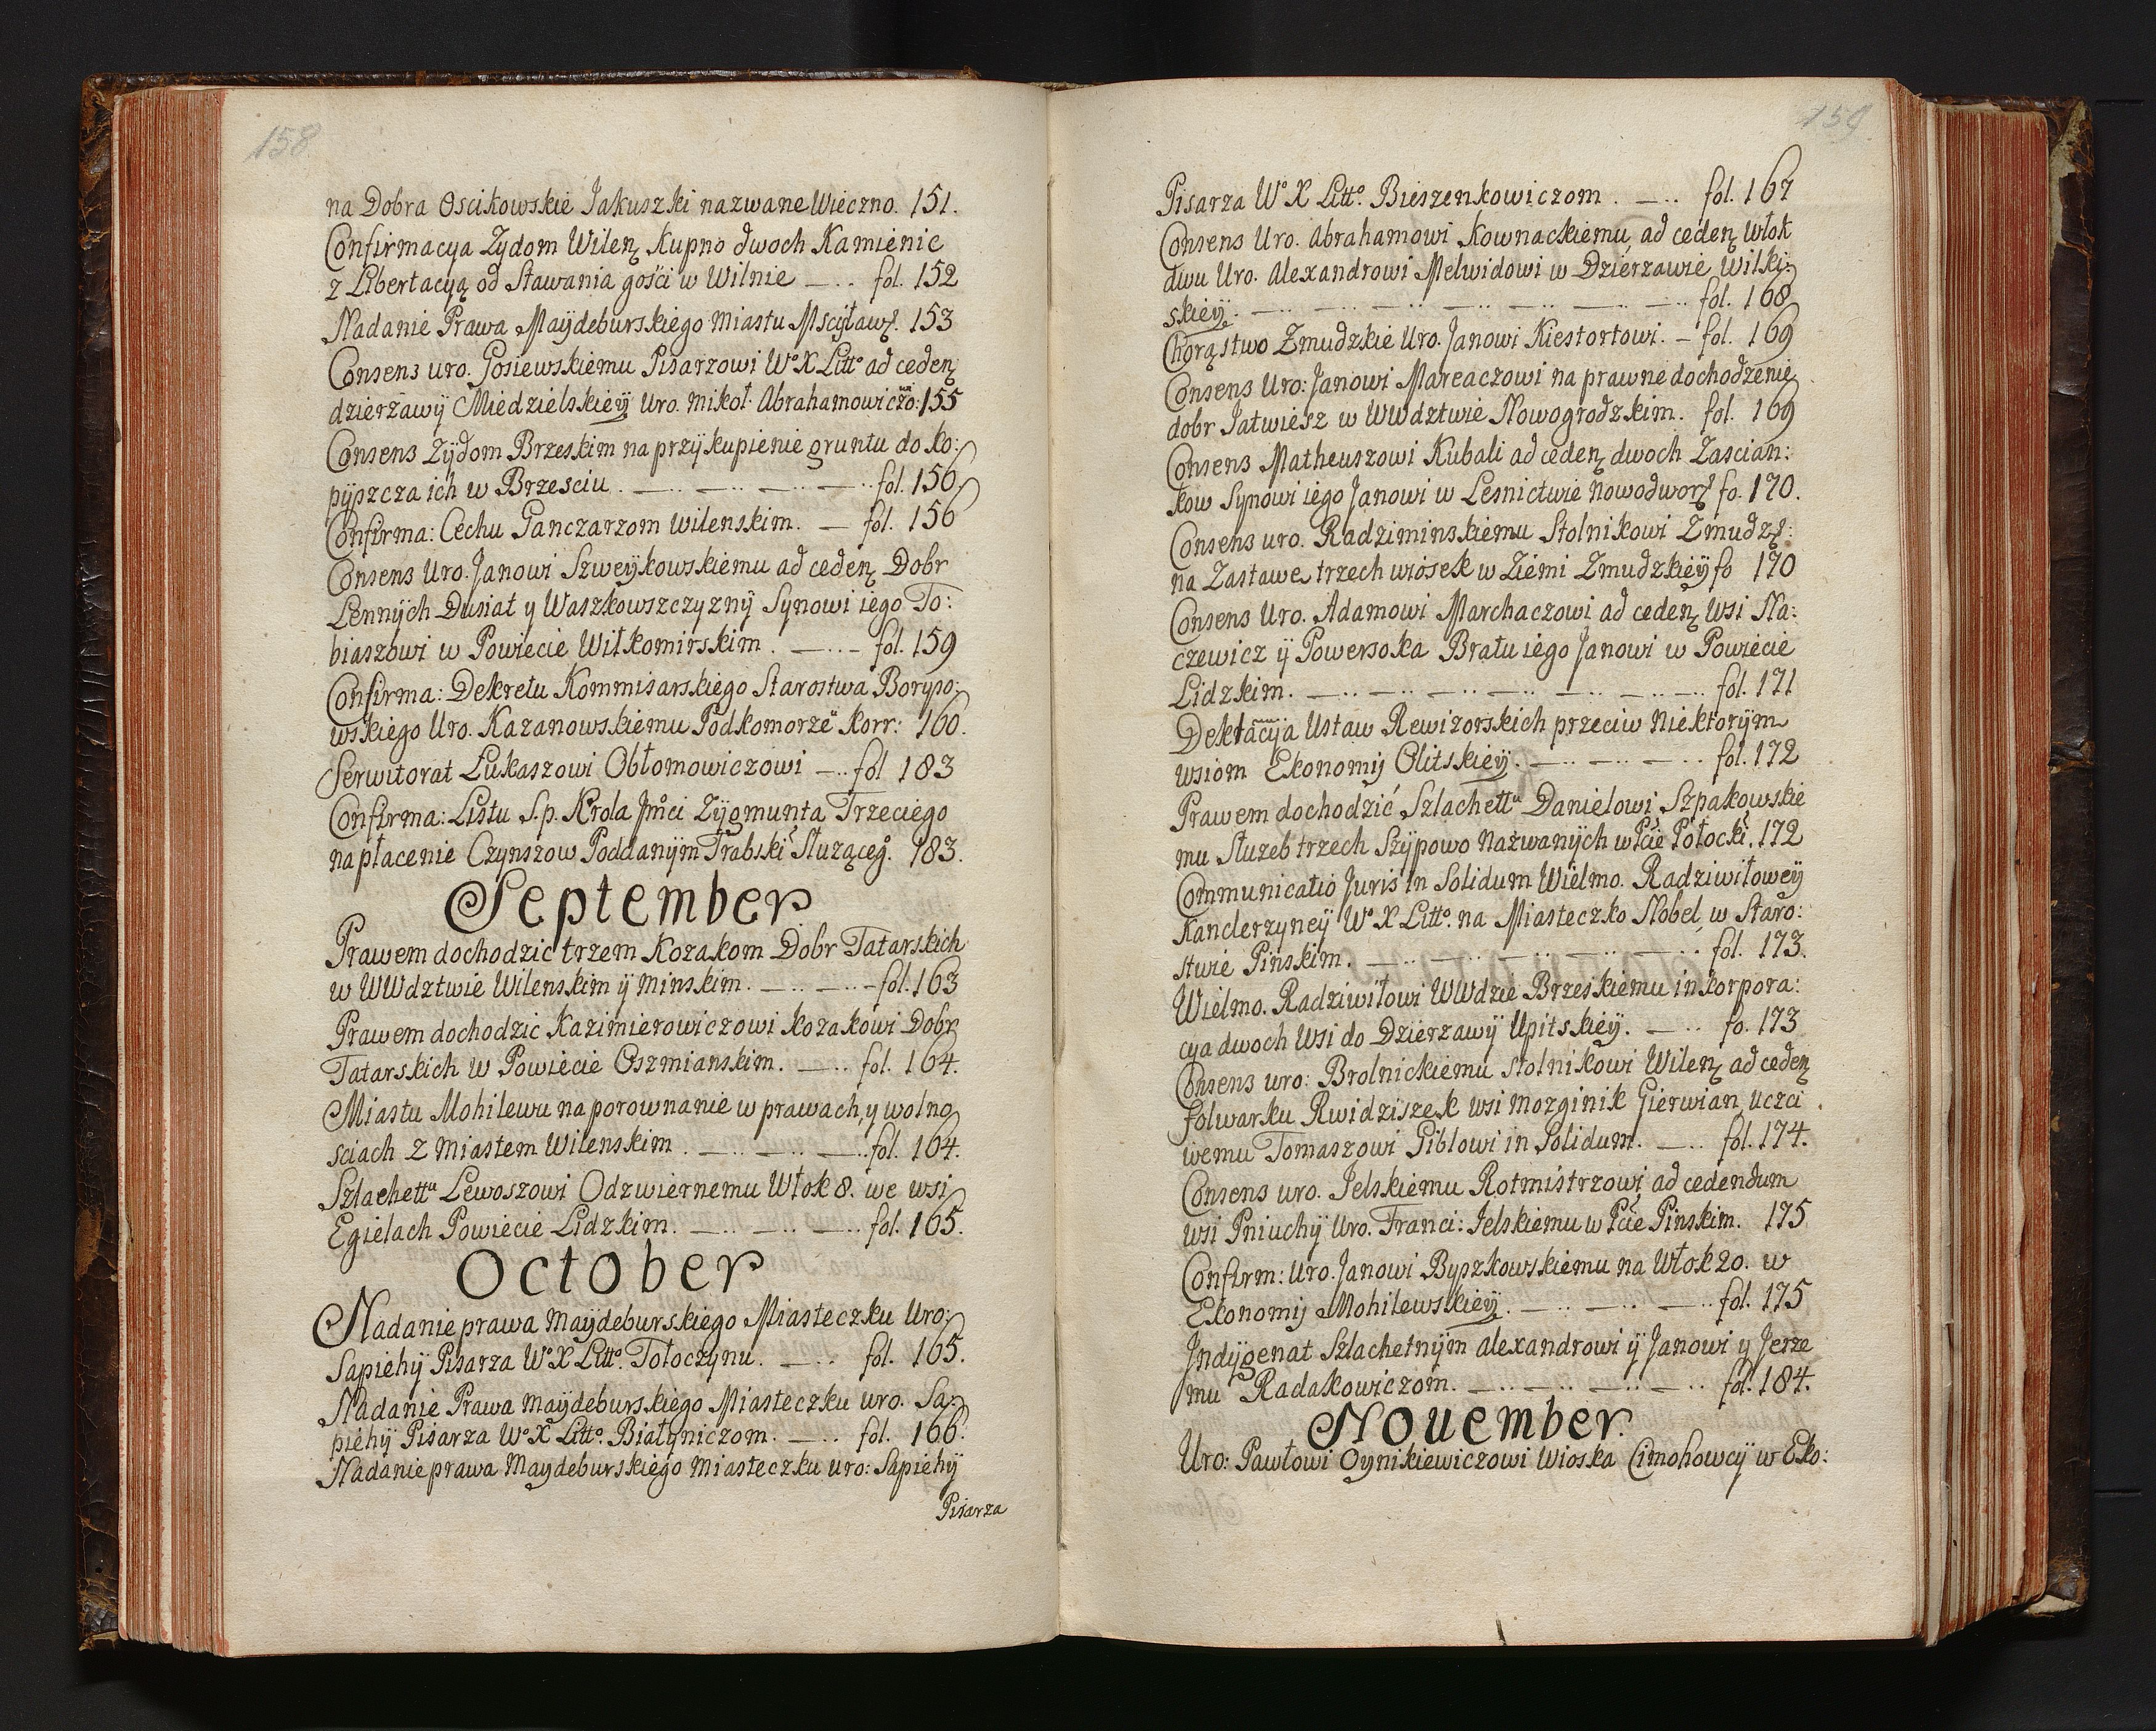 158
na Dobra Oscikowskie Jakuszki nazwane Wieczno. 151.
Confirmacya Zydom Wilen Kupno dwoch Kamienic
z Libertacyą od Stawania gości w Wilnie — . . fol. 152
Nadanie Prawa Maÿdeburskiego Miastu Mscisław. 153
Consens uro. Gosiewskiemu Pisarzowi Wo X Litto ad ceden
dzierzawÿ Miedzielskieÿ Uro. Mikoł. Abrahamowiczo: 155
Consens Zÿdom Brzeskim na przÿkupienie gruntu do ko:
pÿszcza ich w Brzesciu . — .. — .. — .. — .. fol. 156
Confirma: Cechu Ganczarzom Wilenskim. — fol. 156
Consens Uro. Janowi Szweÿkowskiemu ad ceden Dobr
Lennÿch Dusiat y Waszkowszczyznÿ Synowi iego To:
biaszowi w Powiecie Wiłkomirskim . — . . – fol. 159
Confirma: Dekretu Kommisarskiego Starostwa Boryso:
wskiego Uro. Kazanowskiemu Podkomorze Korr: 160.
Serwitorat Łukaszowi Obłomowiczowi — .. fol 183
Confirma: Listu S.p. Krola Jmci Zÿgmunta Trzeciego
na płacenie Czynszow Poddanÿm Trabski Służąceg. 183.
September
Prawem dochodzic trzem Kozakom Dobr Tatarskich
w WWdztwie Wilenskim ÿ Minskim. — .. — .. – fol. 163
Prawem dochodzic Kazimierowiczowi Kozakowi Dobr
Tatarskich w Powiecie Oszmianskim. — .. fol. 164.
Miastu Mohilewu na porownanie w prawach, y wolno
sciach z Miastem Wilenskim . — .. — .. — .. fol. 164.
Szlachettu Lewoszowi Odzwiernemu Włok 8. we wsi
Egielach Powiecie Lidzkim. — .. — .. — .. fol. 165.
October
Nadanie prawa Maÿdeburskiego Miasteczku Uro:
Sapiehÿ Pisarza Wo X Litto. Tołoczynu. — . . fol. 165.
Nadanie Prawa Maÿdeburskiego Miasteczku uro. Sa:
piehÿ Pisarza Wo X Litto. Białyniczom. — . . fol. 166.
Nadanie prawa Maydeburskiego Miasteczku uro: Sapiehÿ
Pisarza
159
Pisarza Wo X Litto. Bieszenkowiczom . — .. fol. 167
Consens Uro. Abrahamowi Kownackiemu ad ceden Włok
dwu Uro. Alexandrowi Melwidowi w Dzierzawie Wilki:
skieÿ. — .. — .. — .. — .. — .. — .. fol. 168
Chorąstwo Zmudzkie Uro. Janowi Kiestortowi. – fol. 169
Consens Uro: Janowi Mareaczowi na prawne dochodzenie
dobr Jatwiesz w WWdztwie Nowogrodzkim. fol. 169
Consens Matheuszowi Kubali ad ceden dwoch Zascian:
kow Synowi iego Janowi w Lesnictwie Nowodwor fo. 170.
Consens uro. Radziminskiemu Stolnikowi Zmudz:
na Zastawe trzech wiosek w Ziemi Zmudzkieÿ fo 170
Consens Uro. Adamowi Marchaczowi ad ceden wsi Na:
czewicz ÿ Powersoka Bratu iego Janowi w Powiecie
Lidzkim. — .. — .. — .. — .. — .. — .. — .. fol. 171
Deklracÿa Ustaw Rewizorskich przeciw Niektorÿm
wsiom Ekonomij Olitskieÿ. — .. — .. — .. fol. 172
Prawem dochodzić Szlachettu Danielowi Szpakowskie
mu Służeb trzech Szÿpowo Nazwanÿch w Pcie Połocki. 172
Communicatio Juris in Solidum Wielmo. Radziwiłoweÿ
Kanclerzyneÿ Wo X Litto. na Miasteczko Nobel w Staro:
stwie Pinskim. — .. — .. — .. — .. — .. fol. 173.
Wielmo. Radziwiłowi WWdzie Brzeskiemu inkorpora:
cya dwoch Wsi do Dzierzawÿ Upitskieÿ. — . . fo. 173
Consens uro: Brolnickiemu Stolnikowi Wilen ad ceden
folwarku Rwidziszek wsi Mozginik Gierwian Uczci
wemu Tomaszowi Giblowi in Solidum. — . . fol. 174.
Consens uro. Jelskiemu Rotmistrzowi ad cedendum
wsi Pniuchÿ Uro. Franci: Jelskiemu w Pcie Pinskim. 175
Confirm: Uro. Janowi Bypzkowskiemu na Włok 20. w
Ekonomij Mohilewskieÿ. — .. — .. — .. fol. 175
Indÿgenat Szlachetnÿm Alexandrowi ÿ Janowi y Jerze
mu Radakowiczom. — .. — .. — .. — .. fol. 184.
November.
Uro: Pawłowi Oynikiewiczowi Wioska Cimohowcÿ w Eko: